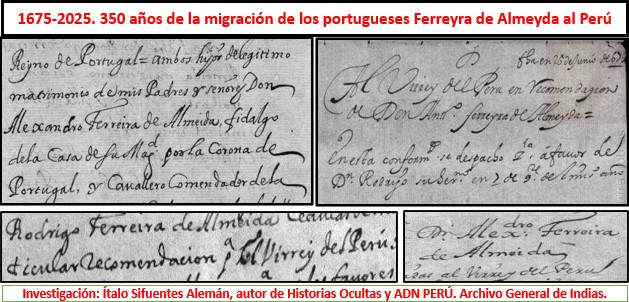 1675-2025. 350 años de la migración de los portugueses Ferreyra de Almeyda al Perú
Reyno de Portugal = ambos hijos de legitimo
matrimonio de mis Padres y senores Don
Alexandro Ferreira de Almeida, fidalgo
dela Casa de su Magd. por la Corona de
Portugal, y Cavallero Comendador dela
fha en 20 de Junio de
Al Virrey del Peru en Recomendacion
de Don Anto. ferreyra de Almeyda =
En esta conformd. se despacho a favor de
Dn. Rodrigo su hermo. en 2 de del mismo año
Rodrigo Ferreira de Almeida Cedula
ticular recomendacion pa. El Virrey del Perú
los favores
Dn. Alexdro. Ferreira
de Almeida
al Virrey del Perú
Investigación: Ítalo Sifuentes Alemán, autor de Historias Ocultas y ADN PERÚ. Archivo General de Indias.